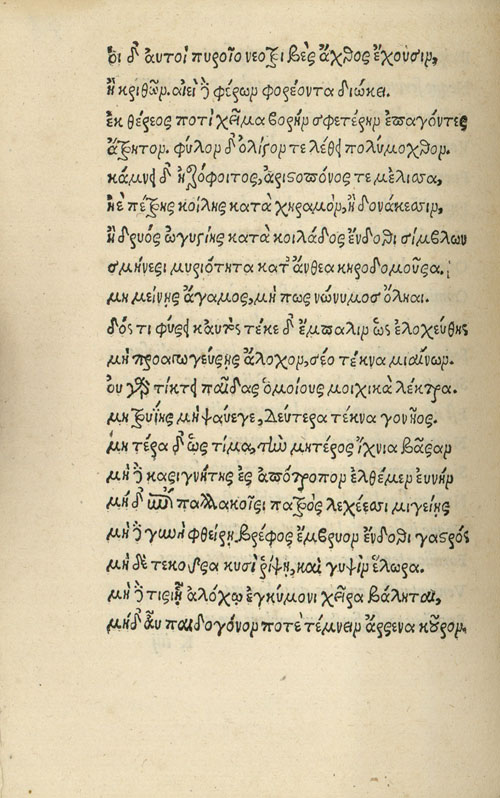 οἱ δ' αὐτοὶ πυροῖο νεοτριβὲς ἄχθος ἔχουσιν,
ἢ κριθῶν. αἰεὶ δὲ φέρων φορέοντα διώκει.
ἐκ θέρεος ποτὶ χεῖμα βορὴν σφετέρην ἐπαγόντες
ἄτρητον. φύλον δ' ὀλίγον τε λέθει πολύμοχθον.
κάμνει δ' ἠερόφοιτος, ἀριστοπόνος τε μέλισσα,
ἠὲ πέτρης κοίλης κατὰ χηραμόν, ἢ δονάκεσσιν,
ἢ δρυός ὠγυγίης κατὰ κοιλάδος ἔνδοθι σίμβλων
σμήνεσι μυριότητα κατ' ἄνθεα κηροδομοῦσα.
μὴ μείνῃς ἄγαμος, μή πως νώνυμος ὄληαι.
δός τι φύσει καυτὸς τέκε δ' ἔμπαλιν ὡς ἐλοχεύθης
μὴ προαγωγεύσῃς ἄλοχον, σέο τέκνα μιαίνων.
ου γὰρ τίκτει παῖδας ὁμοίους μοιχικὰ λέκτρα.
μητρυιῆς μὴ ψαύεγε, Δεύτερα τέκνα γονῆος.
μητέρα δ' ὣς τίμα, τὼ μητέρος ἴχνια βᾶσαν
μὴ δὲ κασιγνήτης ἐς ἀπότροπον ἐλθέμεν ευνήν
μὴ δ' ἐπὶ παλλακοῖσι πατρὸς λεχέεσσι μιγείης
μὴ δὲ γυνὴ φθείρῃ βρέφος ἔμβρυον ἔνδοθι γαστρός
μὴ δὲ τεκοῦσα κυσὶ ῥίψῃ, καὶ γυψὶν ἕλωρα.
μὴ δὲ τις ᾗ ἀλόχῳ ἐγκύμονι χεῖρα βάληται,
μὴ δ' αὖ παιδογόνον ποτὲ τέμνειν ἄρσενα κοῦρον.